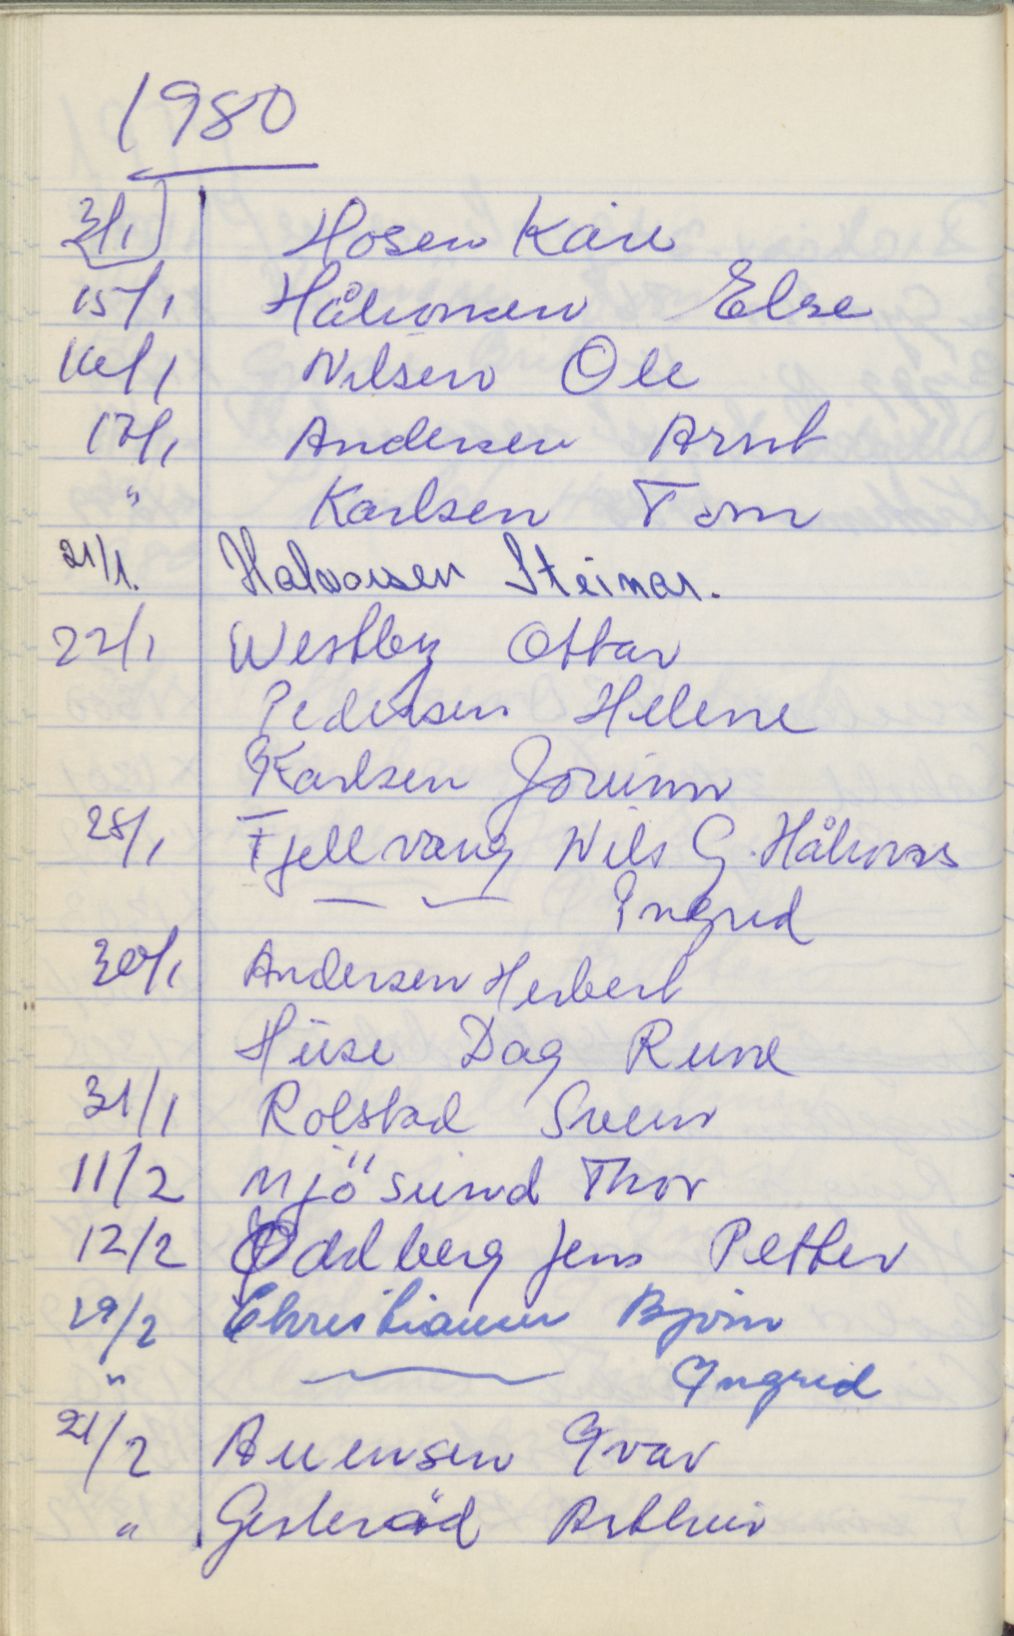 1980
3/1 Hosen Kåre
15/1 Håkonsen Else
16/1 Nilsen Ole
17/1 Andersen Arnt
" Karlsen Tom
21/1. Halvorsen Steinar.
22/1 Westby Ottar
Pedersen Helene
Karlsen Jorunn
28/1 Fjellvang Nils G. Håkonss
— — Ingrid
30/1 Andersen Herbert
Huse Dag Rune
31/1 Rolstad Svein
11/2 Mjösund Thor
12/2 Oddberg Jens Petter
19/2 Christiansen Bjørn
" — Ingrid
21/2 Ivar
" Arthur